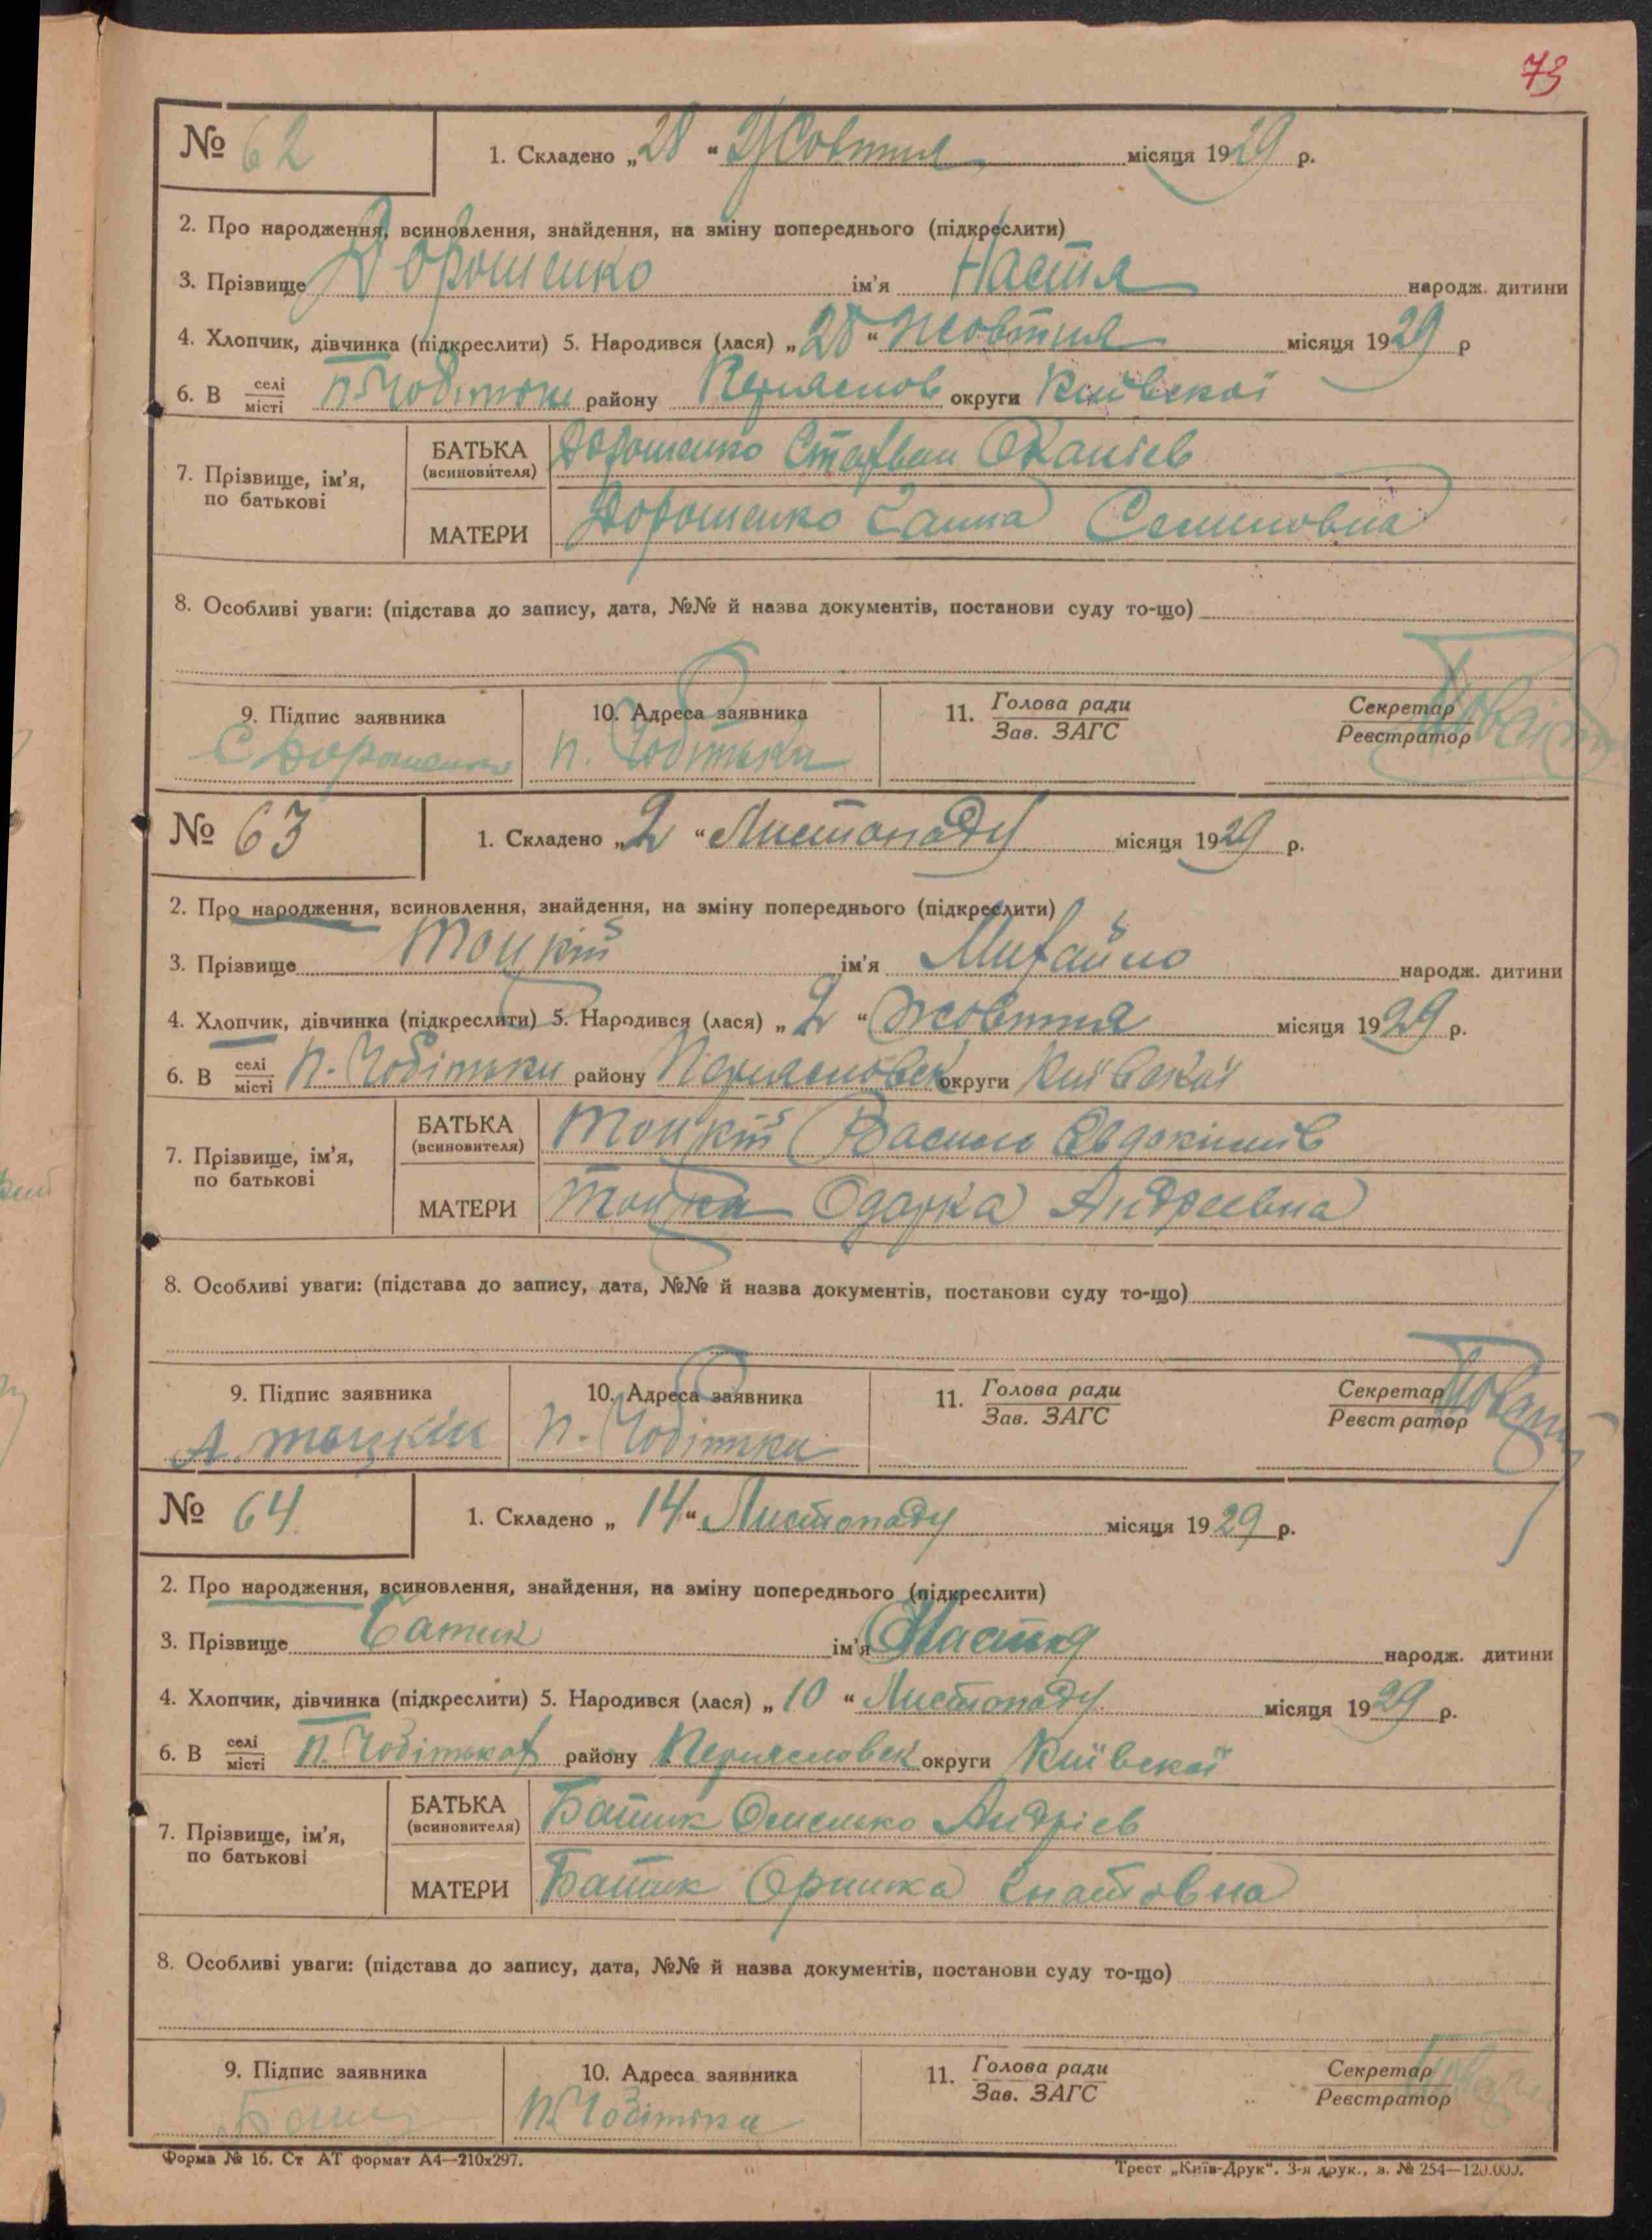 73
№ 62
1. Складено „28“ Жовтня місяця 1929 р.
2. Про народження, всиновлення, знайдення, на зміну попереднього (підкреслити)
3. Прізвище Дорошенко ім'я Настя народж. дитини
4. Хлопчик, дівчинка (підкреслити) 5. Народився (лася) „28“ жовтня місяця 1929 р
6. В селі місті П. району округи Київської
7. Прізвище, ім'я, по батькові
БАТЬКА (всиновителя) Дорошенко Степан
МАТЕРИ Дорошенко Ганна
8. Особливі уваги: (підстава до запису, дата, №№ й назва документів, постанови суду то-що)
9. Підпис заявника
10. Адреса заявника
11. Голова ради Зав. ЗАГС
Секретар Реєстратор
С Дорошенко п. Чобітьки
№ 63
1. Складено „2“ Листопаду місяця 1929 р.
2. Про народження, всиновлення, знайдення, на зміну попереднього (підкреслити)
3. Прізвище Тоцкій ім'я Михайло народж. дитини
4. Хлопчик, дівчинка (підкреслити) 5. Народився (лася) „2“ жовтня місяця 1929 р.
6. В селі місті П. Чобітьки району Переясловск округи Київськай
7. Прізвище, ім'я, по батькові
БАТЬКА (всиновителя) Тоцкій Василь Евдокимів
МАТЕРИ Одарка Андреевна
8. Особливі уваги: (підстава до запису, дата, №№ й назва документів, постанови суду то-що)
9. Підпис заявника
10. Адреса заявника
11. Голова ради Зав. ЗАГС
Секретар Реєстратор
А. п. Чобітьки
№ 64
1. Складено „14“ Листопаду місяця 1929 р.
2. Про народження, всиновлення, знайдення, на зміну попереднього (підкреслити)
3. Прізвище Батик ім'я Настя народж. дитини
4. Хлопчик, дівчинка (підкреслити) 5. Народився (лася) „10“ Листопаду місяця 1929 р.
6. В селі місті п. Чобітьках району Переясловск округи Київської
7. Прізвище, ім'я, по батькові
БАТЬКА (всиновителя) Батик Омелько Андріев
МАТЕРИ Батик Оришка
8. Особливі уваги: (підстава до запису, дата, №№ й назва документів, постанови суду то-що)
9. Підпис заявника
10. Адреса заявника
11. Голова ради Зав. ЗАГС
Секретар Реєстратор
П. Чобітьки
Форма № 16. Ст АТ формат А4—210х297.
Трест „Київ-Друк“. 3-я друк., з. № 254—120.000.